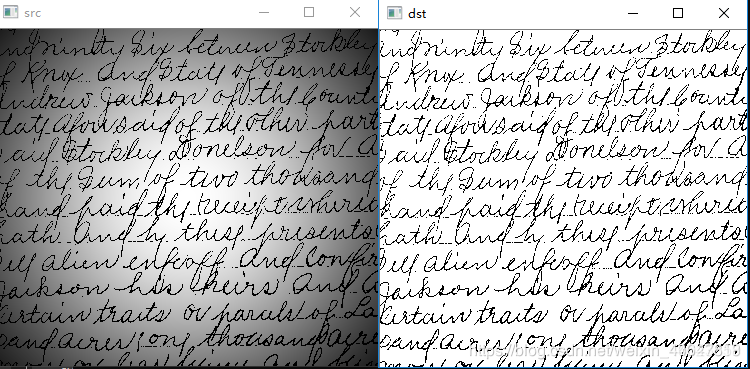 src
nd ninty Six between Stockley
of Knox And State of Tennessey
Andrew Jackson off the County
tate Aforesaid of the other part
aul Stockley Donelson for A
of the Sum of two thousand
hand paid the receipt
hath And by these presents
ell alien enfeoff And Confir
Jackson his heirs And A
certain traits or parcels of La
sand acres one thousand acre
dst
nd ninty Six between Stockley
of Knox And State of Tennessey
Andrew Jackson off the County
tate Aforesaid of the other part
aul Stockley Donelson for A
of the Sum of two thousand
hand paid the receipt
hath And by these presents
ell alien enfeoff And Confir
Jackson his heirs And A
certain traits or parcels of La
sand acres one thousand acre